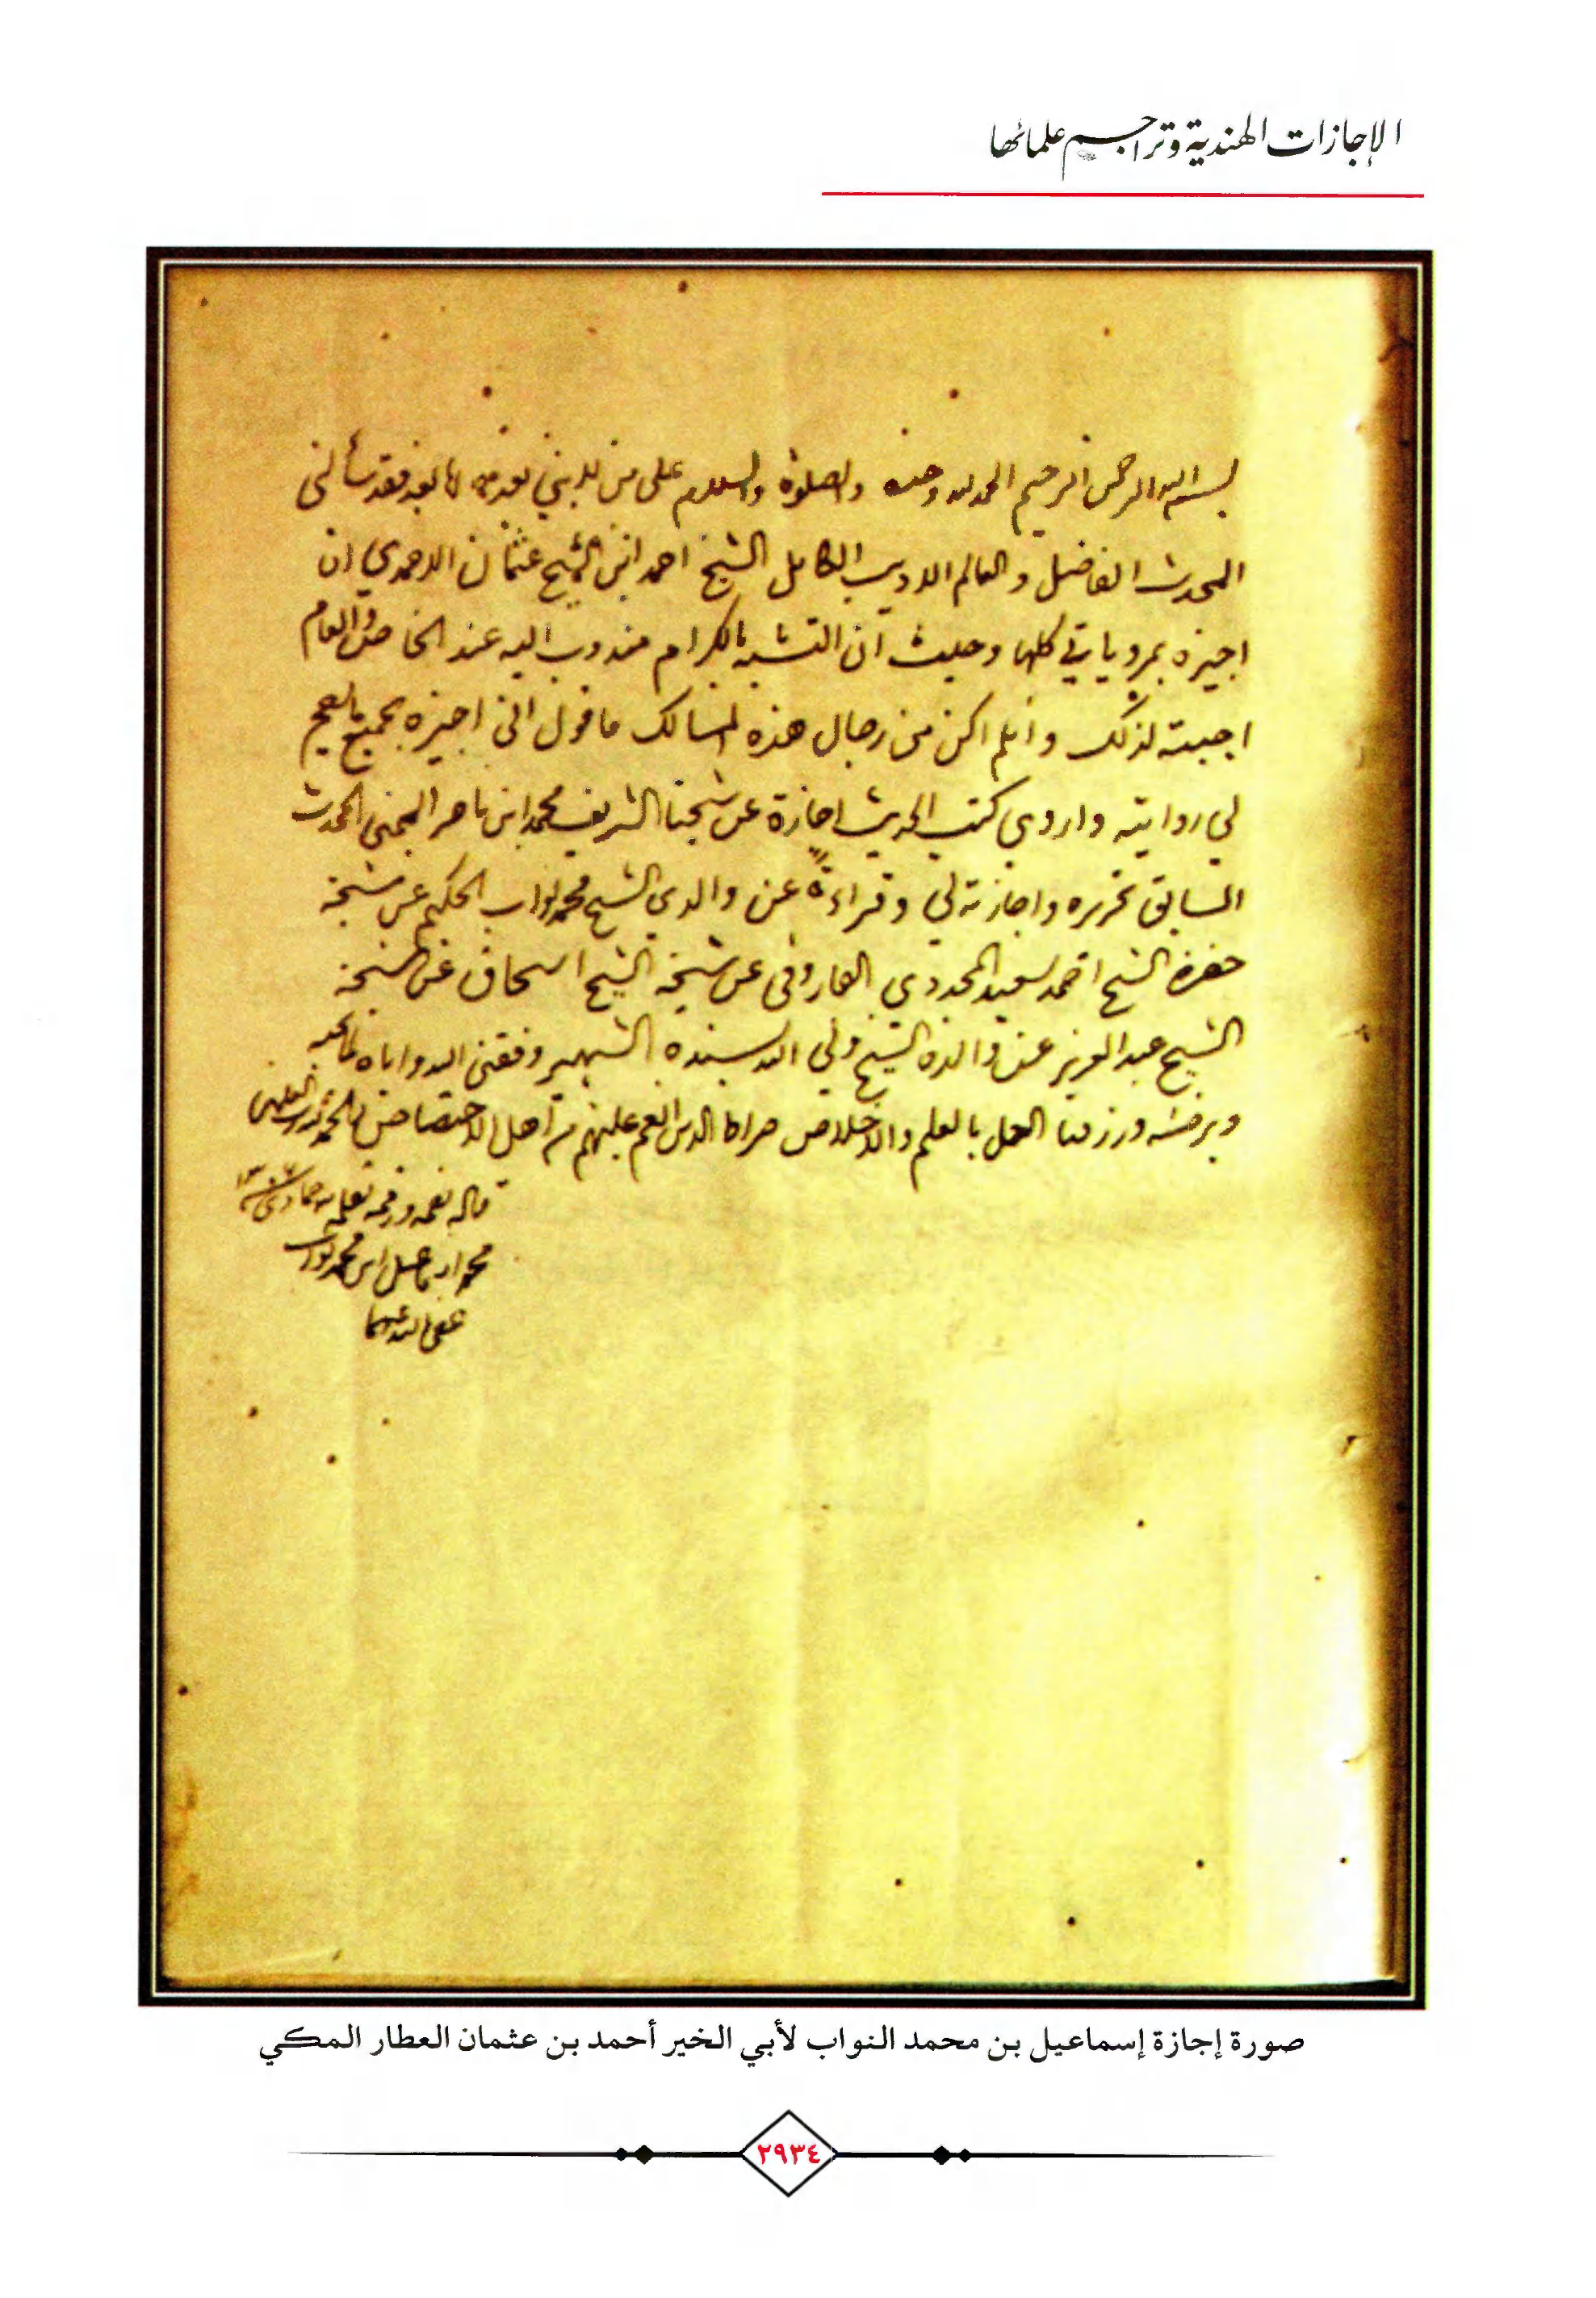 الإجازات الهندية وتراجم علمائها
بسم الله الرحمن الرحيم الحمد لله وحده والصلوة والسلام على من لا نبي بعده اما بعد فقد سألني
المحدث الفاضل والعالم الاديب الكامل الشيخ احمد ابن الشيخ عثمان الاحمدي ان
اجيزه بمروياتي كلها وحيث ان التشبه بالكرام مندوب اليه عند الخاص والعام
اجبته لذلك وان لم اكن من رجال هذه المسالك فاقول اني اجيزه بجميع ما يصح
لي روايته واروي كتب الحديث اجازة عن شيخنا الشريف محمد ابن ناصر المحدث
السابق تحريره واجازته لي وقراءة عن والدي الشيخ محمد نواب الحكيم عن شيخه
حضرة الشيخ احمد سعيد المجددي الفاروقي عن شيخه الشيخ اسحاق عن شيخه
الشيخ عبد العزيز عن والده الشيخ ولي الله بسنده الشهير وفقني الله واياه لما يحبه
ويرضه ورزقنا العمل بالعلم والاخلاص صراط الذين انعم عليهم من اهل الاختصاص والحمد لله رب العلمين
قاله بفمه ورقمه بقلمه
محمد اسماعيل ابن محمد نواب
عفى الله عنهما
صورة إجازة إسماعيل بن محمد النواب لأبي الخير أحمد بن عثمان العطار المكي
٢٩٣٤